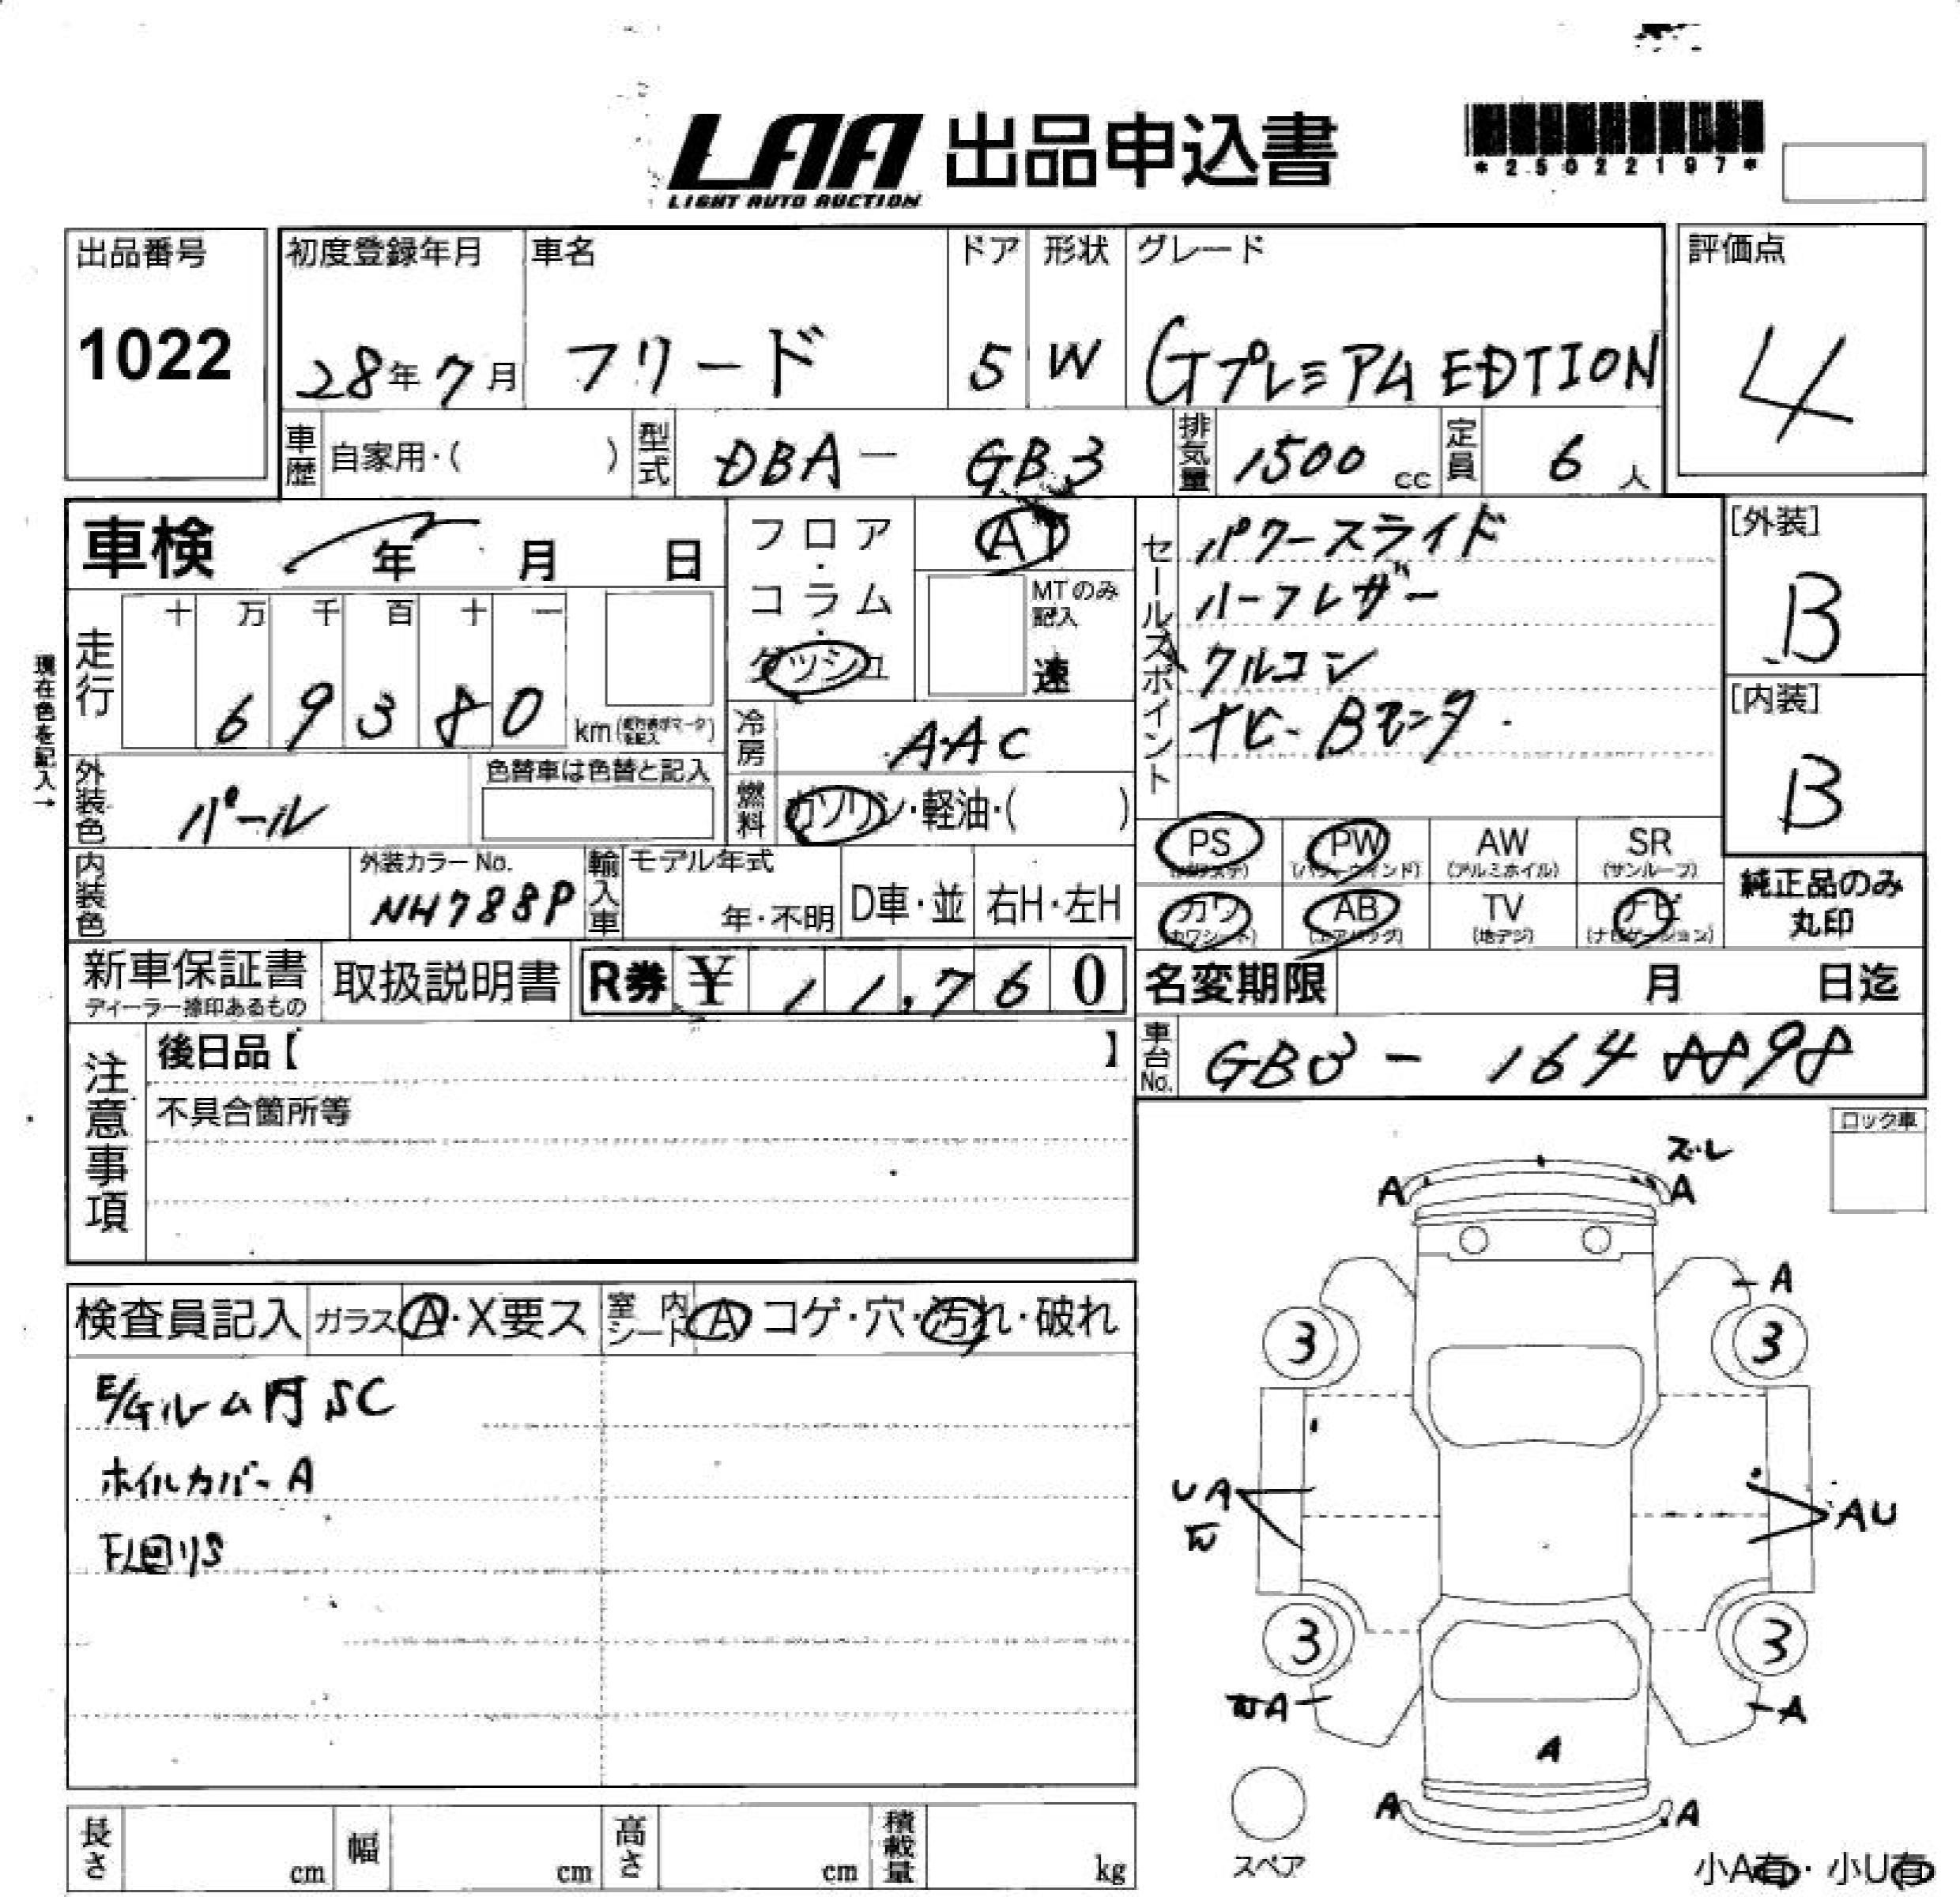 LAA 出品申込書
LIGHT AUTO AUCTION
*25022197*
出品番号
1022
初度登録年月
28年7月
車名
フリード
ドア
5
形状
W
グレード
Gプレミアム EDTION
評価点
4
車歴 自家用・( )
型式 DBA- GB3
排気量 1500 cc
定員 6 人
車検 年 月 日
フロア・コラム・ダッシュ
AT
MTのみ記入
速
現在色を記入→
走行
十 万 千 百 十 一
6 9 3 8 0 km
冷房 AAC
燃料 ガソリン・軽油・( )
外装色 パール
色替車は色替と記入
内装色
外装カラーNo.
NH788P
輸入車
モデル年式
年・不明
D車・並
右H・左H
セールスポイント
パワースライド
ハーフレザー
クルコン
ナビ- Bモニタ-
[外装]
B
[内装]
B
PS PW AW SR
(パワステ) (パワーウインド) (アルミホイル) (サンルーフ)
カワ AB TV ナビ
(カワシート) (エアバッグ) (地デジ) (ナビゲーション)
純正品のみ
丸印
新車保証書
ディーラー捺印あるもの
取扱説明書
R券 ¥ 11,760
名変期限 月 日迄
車台No. GB3 - 164 8898
注意事項
後日品【 】
不具合箇所等
ロック車
検査員記入
ガラス A・X要ス
室内シート A コゲ・穴・汚れ・破れ
E/Gルーム内SC
ホイルカバーA
F廻りS
ズレ
A A
A
3 3
UA
AU
3 3
A
A
A
A A
スペア
長さ cm
幅 cm
高さ cm
積載量 kg
小A有・小U有